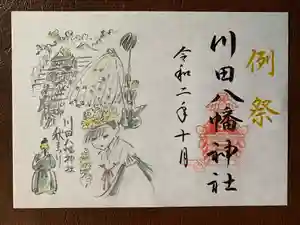 例祭
川田八幡神社
令和二年十月
川田八幡神社